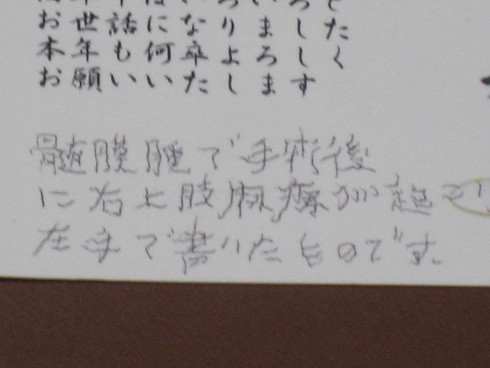 お世話になりました
本年も何卒よろしく
お願いいたします
髄膜腫で手術後
に右上肢麻痺が起こり
左手で書いたものです。